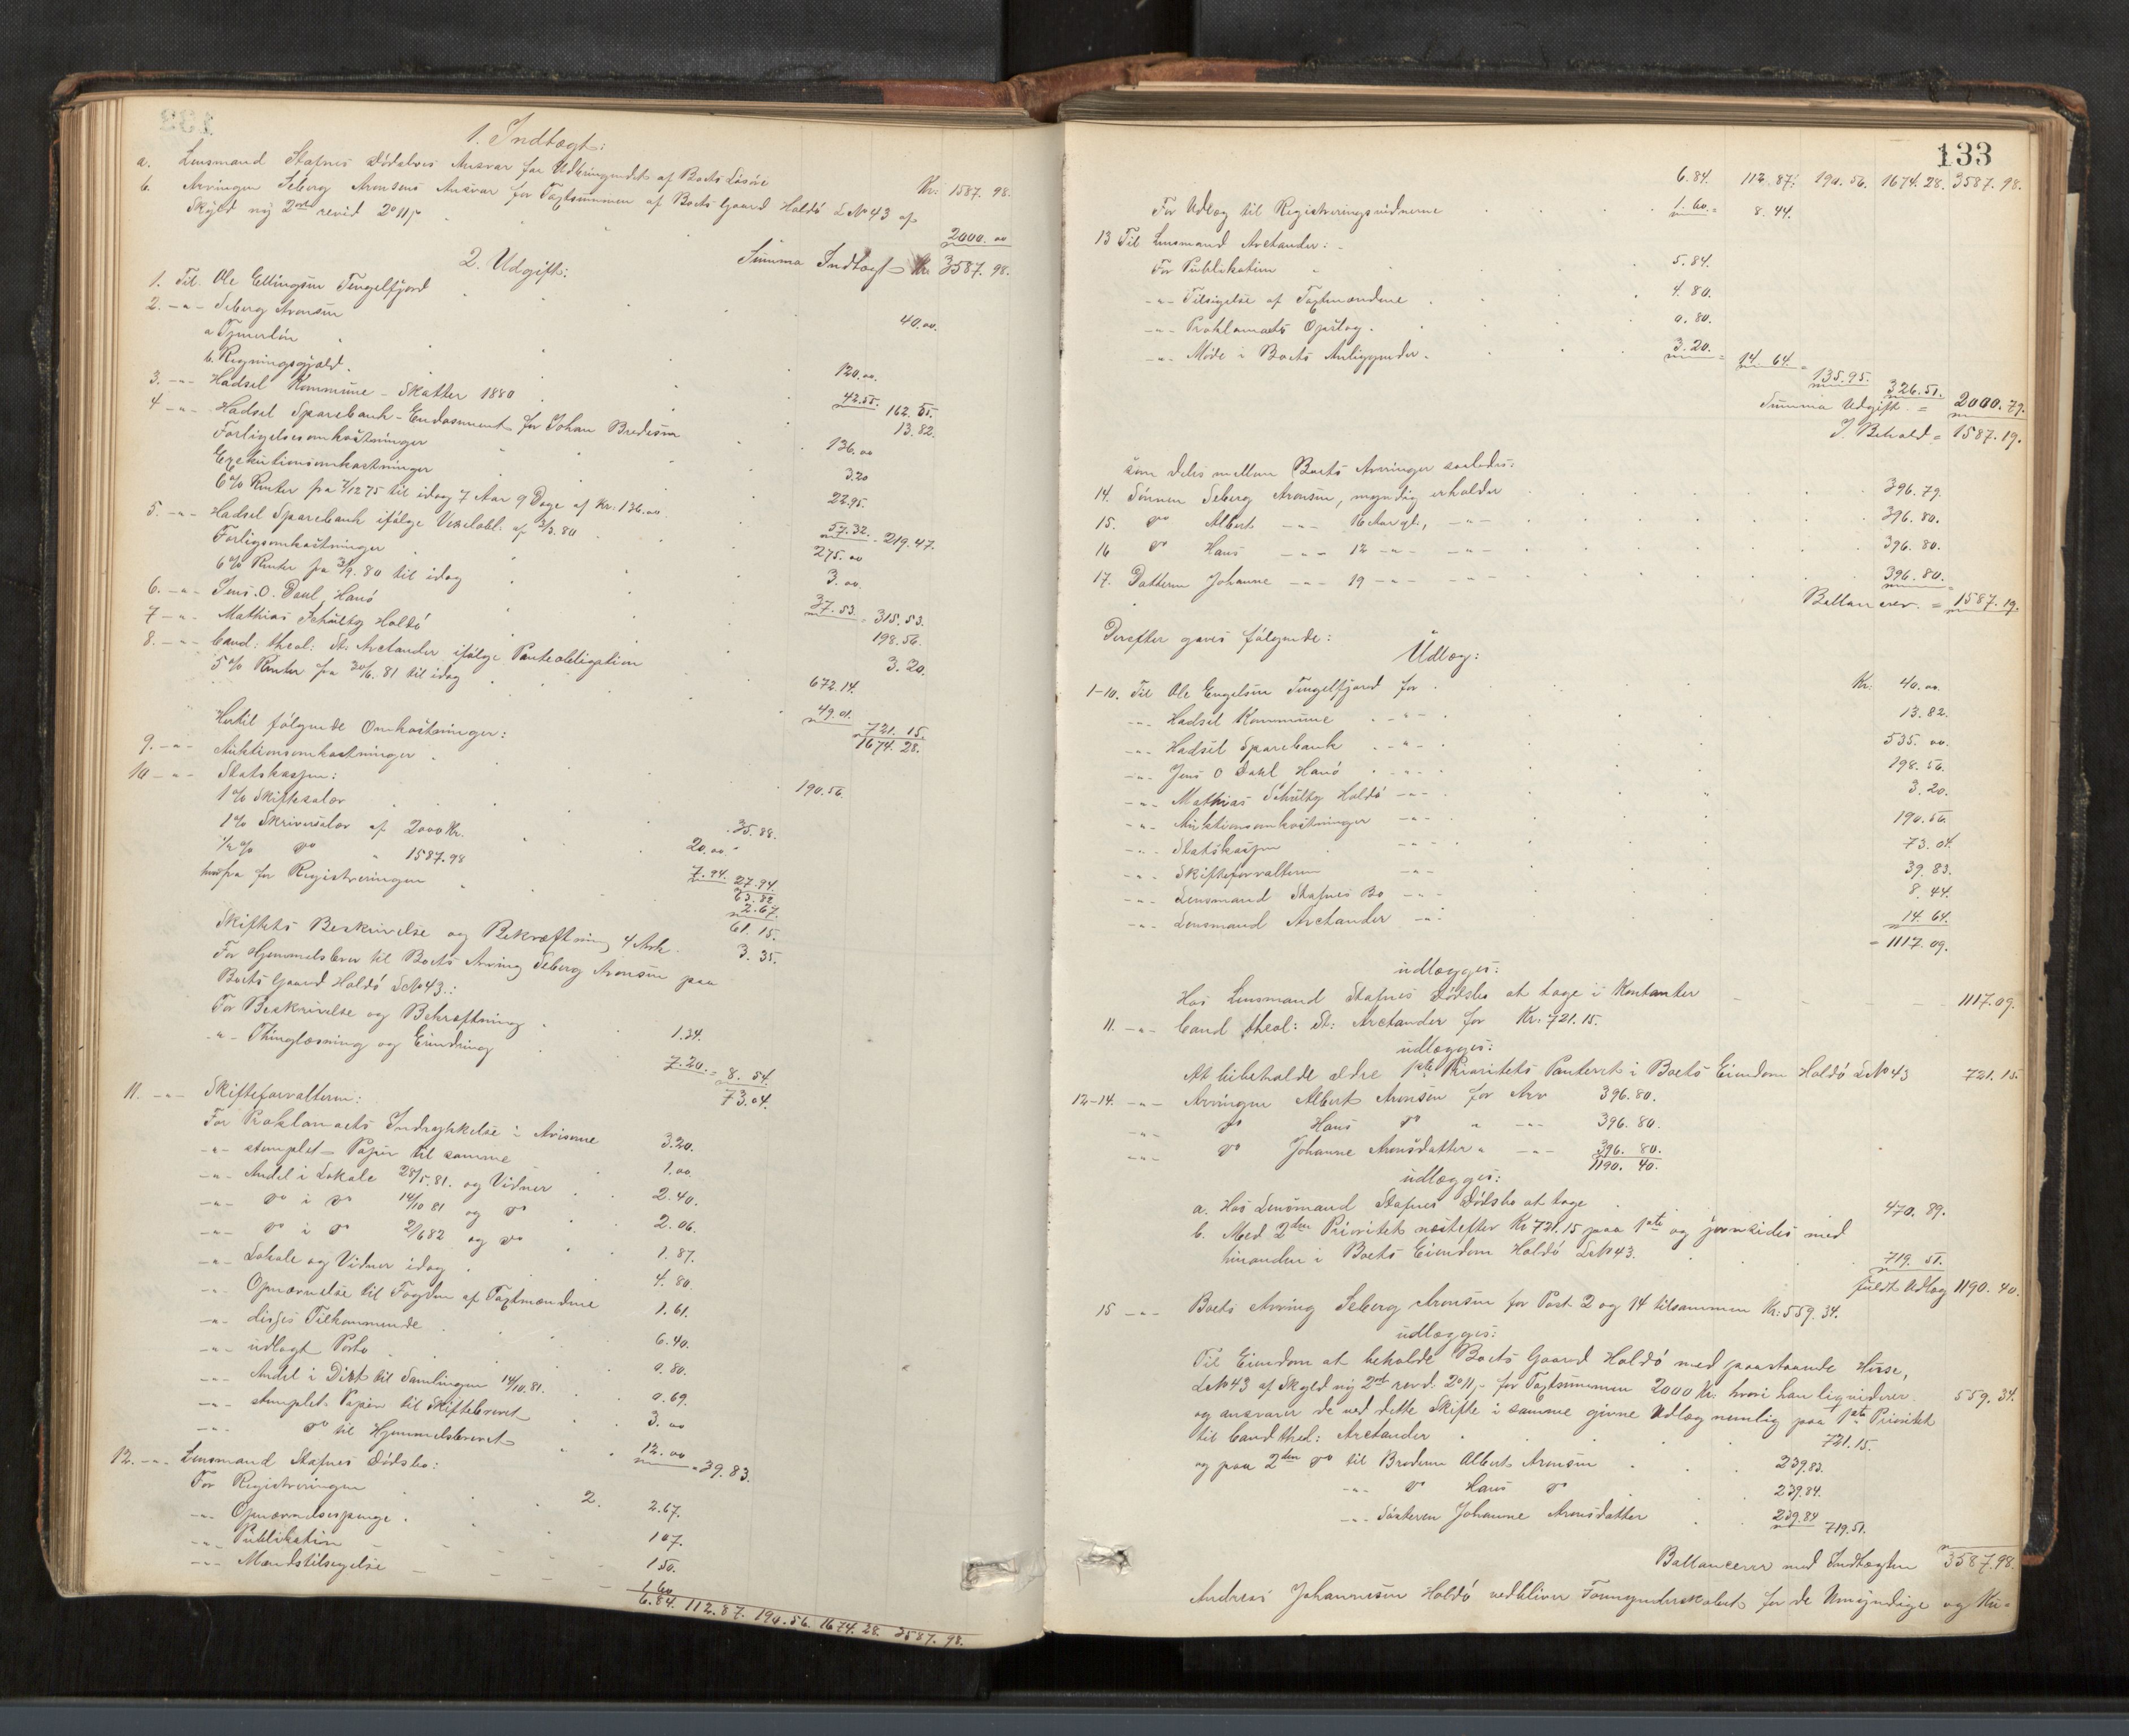 1. Indtægt:
a. Lensmand Stafnes Dödsboes Ansvar for Udbringendet af Boets Lösöre Kr. 1587. 98.
b. Arvingen Seberg Aronsens Ansvar for Taxtsummen af Boets Gaard Holdö LNo 43 af
Skyld ny 2 revid 2011 2000. 00
Summa Indtægt = Kr. 3587. 98.
2. Udgift:
1. Til Ole Ellingsen Tengelfjord 40. 00.
2. -"- Seberg Aronsen
a Tjenerlön 120. 00.
b. Regningsgjæld 42.55. 162. 55.
3. -"- Hadsel Kommune - Skatter 1880 13. 82.
4 -"- Hadsel Sparebank - Endosement for Johan Bredesen 136. 00
Forligelsesomkostninger 3.20
Exekutionsomkostninger 22.95.
6% Renter fra 7/12 75 til idag 7 Aar 9 Dage af Kr. 136.00 57. 32. 219. 47.
5. -"- Hadsel Sparebank ifölge Vexelobl. af 3/3. 80 275. 00
Forligsomkostninger 3. 00.
6% Renter fra 3/9. 80 til idag 37. 53. 315. 53.
6. -"- Jens. O. Dahl Hanö 198. 56.
7 -"- Mathias Schultz Holdö 3. 20.
8. -"- Cand: theol: St. Arctander ifölge Panteobligation 672. 14.
5% Renter fra 30/6. 81 til idag 49. 01. 721. 15.
1674. 28.
Hertil fölgende Omkostninger:
9. -"- Auktionsomkostninger 190. 56.
10 -"- Statskassen:
1% Skiftesalær 35. 88.
1% Skriversalær af 2000 Kr. 20. 00
1/2% do " 1587.98 7. 94. 27. 94.
63. 82
herfra for Registreringen 2. 67.
61. 15.
Skiftets Beskrivelse og Bekræftning 4 Ark 3. 35.
For Hjemmelsbrev til Boets Arving Seberg Aronsen paa
Boets Gaard Holdö LNo 43.:
For Beskrivelse og Bekræftning 1.34.
-"- Thinglæsning og Erindring 7. 20. = 8. 54.
73. 04.
11. -"- Skifteforvalteren:
For Proklamaets Indrykkelse i Aviserne 3.20.
-"- stemplet Papir til samme 1. 00.
-"- Andel i Lokale 28/5. 81. og Vidner 2. 40.
-"- do i do 14/10 81 og do 2. 06.
-"- do i do 2/6 82 og do 1. 87.
-"- Lokale og Vidner idag 4. 80
-"- Opnævnelse til Fogden af Taxtmændene 1. 61.
-"- disses Tilkommende 6. 40.
-"- udlagt Porto 0. 80.
-"- Andel i Diæt til Samlingen 14/10.81. 0. 69.
-"- stemplet Papir til Skiftebrevet 3. 00
-"- do til Hjemmelsbrevet 12. 00 = 39. 83.
12. -"- Lensmand Stafnes Dödsbo:
For Registreringen 2. 2. 67.
-"- Opnævnelsespenge 1 07.
-"- Publikation 1 50.
-"- Mændstilsigelse 1 60
6. 84. 112. 87. 190. 56. 1674. 28. 3587. 98.
133
6. 84. 112. 87. 190. 56. 1674. 28. 3587. 98.
For Udlæg til Registreringsvidnerne 1. 60. = 8. 44.
13 Til Lensmand Arctander: -
For Publikation 5. 84.
-"- Tilsigelse af Taxtmændene 4. 80.
-"- Proklamaets Opslag 0. 80.
-"- Möde i Boets Anliggender 3. 20. = 14 64. = 135. 95. 326. 51.
Summa Udgift = 2000. 79.
I Behold = 1587. 19.
som deles mellem Boets Arvinger saaledes:
14. Sönnen Seberg Aronsen, myndig erholder 396. 79.
15. do Albert -"- 16 Aar gl., -"- 396. 80.
16 do Hans -"- 12 -"- -"- 396. 80.
17. Datteren Johanne -"- 19 -"- -"- 396. 80.
Ballancerer = 1587. 19.
Derefter gaves fölgende:
Udlæg:
1-10. Til Ole Engelsen Tengelfjord for Kr: 40. 00.
-"- Hadsel Kommune -"- 13. 82.
-"- Hadsel Sparebank -"- 535. 00.
-"- Jens O Dahl Hanö -"- 198. 56.
-"- Mathias Schultz Holdö -"- 3. 20.
-"- Auktionsomkostninger -"- 190. 56.
-"- Statskassen -"- 73. 04.
-"- Skifteforvalteren -"- 39. 83.
-"- Lensmand Stafnes Bo -"- 8. 44.
-"- Lensmand Arctander -"- 14 64.
= 1117. 09.
udlægges:
Hos Lensmand Stafnes Dödsbo at tage i Kontanter 1117. 09.
11. -"- Cand theol: St: Arctander for Kr. 721. 15.
udlægges:
At bibeholde ældre 1ste Prioritets Panteret i Boets Eiendom Holdö LNo 43 721. 15
12-14. -"- Arvingen Albert Aronsen for Arv 396. 80.
-"- do Hans do " -"- 396. 80.
-"- do Johanne Aronsdatter " -"- 396. 80.
1190. 40.
udlægges:
a. Hos Lensmand Stafnes Dödsbo at tage 470. 89.
b. Med 2den Prioritet næstefter Kr 721. 15 paa 1ste og jevnsides med
hinanden i Boets Eiendom Holdö LNo 43. 719. 51.
fuldt Udlæg 1190. 40.
15 -"- Boets Arving Seberg Aronsen for Post 2 og 14 tilsammen Kr: 559. 34.
udlægges:
Til Eiendom at beholde Boets Gaard Holdö med paastaaende Huse,
LNo 43 af Skyld ny 2 revd. 2011, - for Taxtsummen 2000 Kr. hvori han liqviderer 559. 34.
og ansvarer de ved dette Skifte i samme givne Udlæg nemlig paa 1ste Prioritet
til Cand theol: Arctander 721. 15.
og paa 2den do til Broderen Albert Aronsen 239.83.
-"- do Hans do 239.84.
-"- Sösteren Johanne Aronsdatter 239.84 719. 51.
Ballancerer med Indtægten 3587. 98.
Andreas Johannesen Holdö vedbliver Formynderskabet for de Umyndige og Ku=